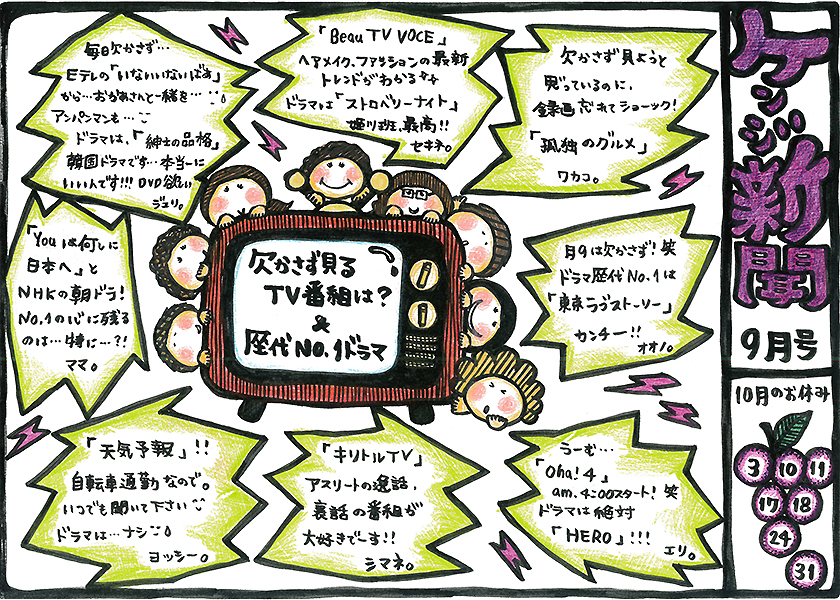 ケンジ新聞
9月号
10月のお休み
3
10
11
17
18
24
31
欠かさず見る
TV番組は?
&
歴代NO.1ドラマ
毎日欠かさず…
Eテレの「いないいないばあ」
から…おかあさんと一緒を…
アンパンマンも…
ドラマは、「紳士の品格」
韓国ドラマです…本当に
いいんです!!! DVD欲い
ジェリ。
「Beau TV VOCE」
ヘアメイク、ファッションの最新
トレンドがわかる
ドラマは「ストロベリーナイト」
姫川班、最高!!
セキネ。
欠かさず見ようと
思っているのに、
録画忘れてショーック!
「孤独のグルメ」
ワカコ。
「Youは何しに
日本へ」と
NHKの朝ドラ!
NO.1の心に残る
のは…特に…?!
ママ。
月9は欠かさず!笑
ドラマ歴代NO.1は
「東京ラブストーリー」
カンチー!!
オオノ。
「天気予報」!!
自転車通勤なので。
いつでも聞いて下さい
ドラマは…ナシ
ヨッシー。
「キリトルTV」
アスリートの逸話、
裏話の番組が
大好きでーす!!
シマネ。
うーむ…
「Oha!4」
am.4:00スタート!笑
ドラマは絶対
「HERO」!!!
エリ。